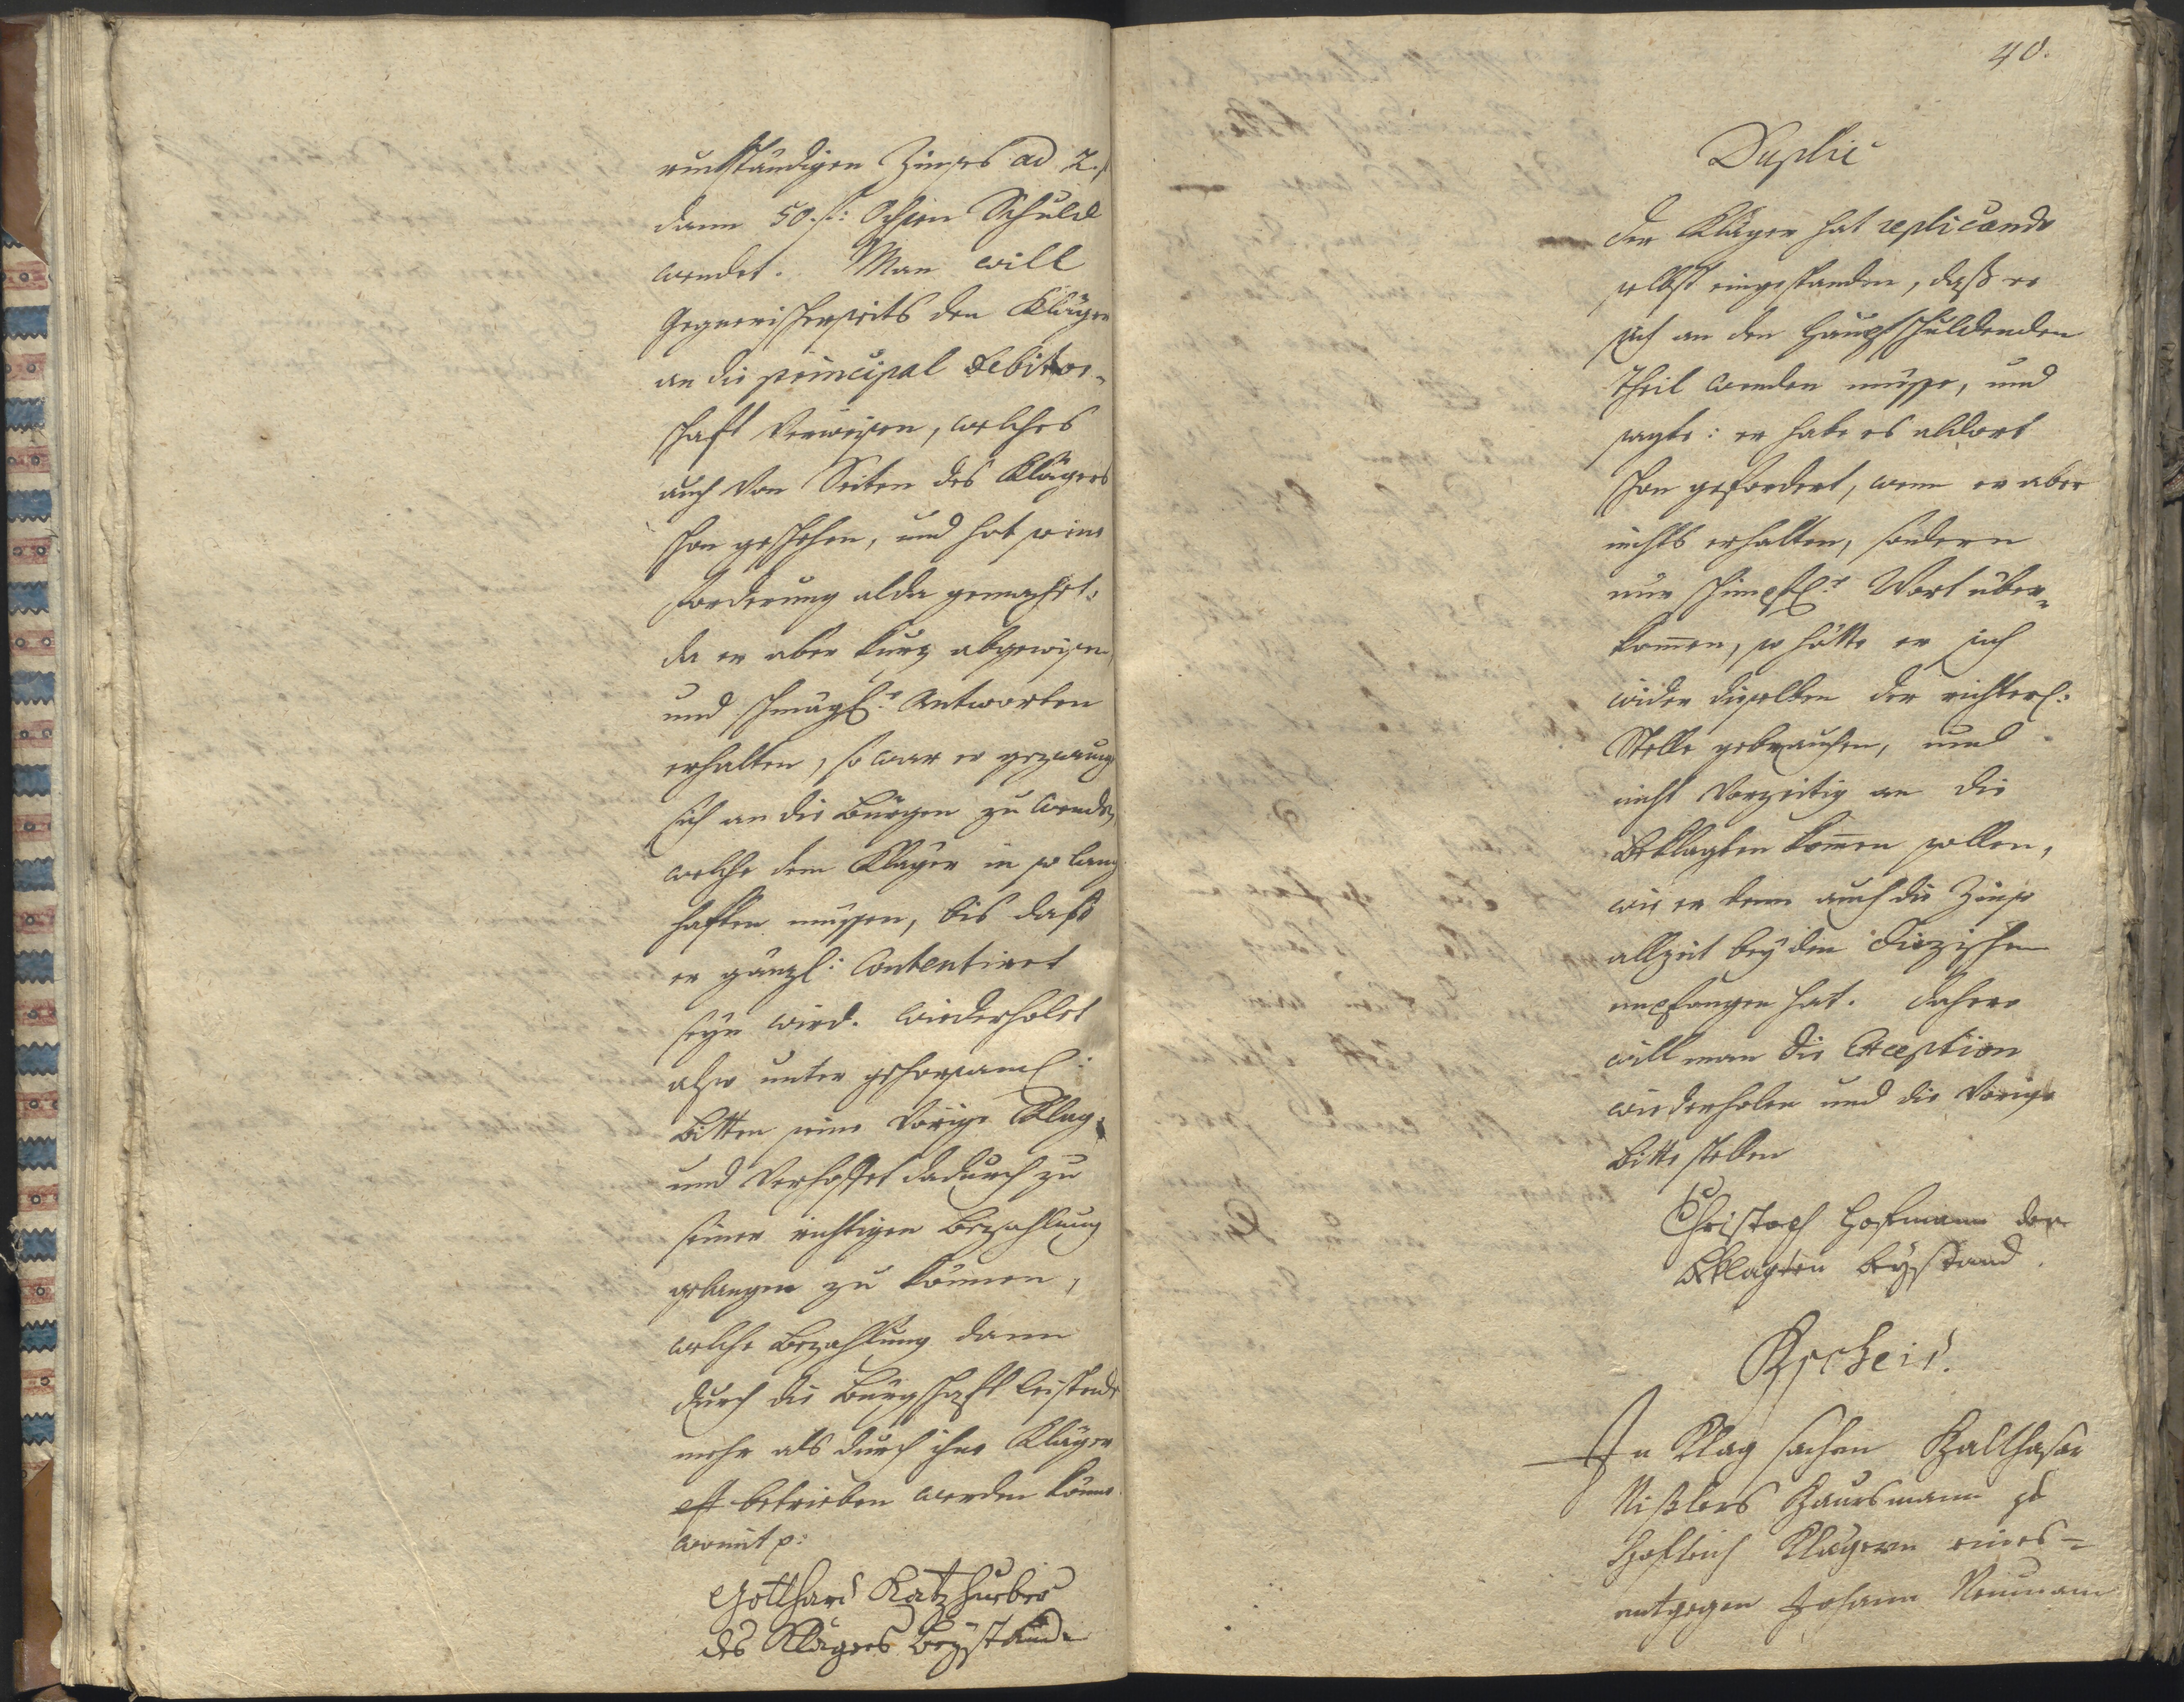 ruckständigen Zinses ad 2 f
dann 50. f: Ochsen Schuld
wendet. Man will
Gegnerischerseits den Kläger
an die principal Debitor-
schaft Verweisen, welches
auch von Seiten des Klägers
schon geschehen, und hat seine
forderung alda gemacht.
da er aber kurz abgewisen,
und schmächl: Antworten
erhalten, so war er gezwung
sich an die Bürgen zu wenden,
welche dem Kläger in so lang
haften müssen, bis daß
er gänzl: Contentiret
seyn wird. Wiederholet
also unter gehorsaml:
Bitten seine Vorige Klag,
und Verhoffet dadurch zu
seiner richtigen Bezahlung
gelangen zu können,
welche Bezahlung dann
durch die Bürgschaft leistende
mehr als durch ihne Kläger
betrieben werden könne.
womit p:
Gotthard Katzhuber
des Klägers Beystand
40.
Duplic
Der Kläger hat replicando
selbst eingestanden, daß er
sich an den Hauptschuldenden
Theil wenden müsse, und
sagte: er habe es aldort
schon gefordert, wenn er aber
nichts erhalten, sondern
nur schimpfl: Wort über-
kommen, so hätte er sich
wider dieselben der richterl:
Stelle gebrauchen, und
nicht Vorzeitig an die
Beklagten kommen sollen,
wie er denn auch die Zinse
allzeit bey den
empfangen hat. Dahero
will man die Exception
wiederholen und die Vorige
Bitte stellen
Christoph Hofmann der
Beklagten Beystand.
Bscheid.
In Klag sachen Balthasar
Nißlers Hausmann zu
Klägern eines-
entgegen Johann Neumann